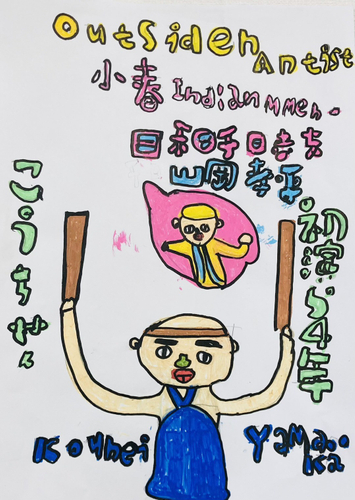 OutSiden Antist
小春 Indian mmen.
日和
山岡孝平
こうちゃん
初演54年
Kouhei Yamaoka